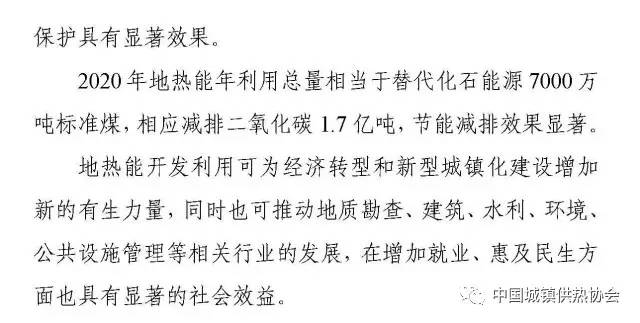 保护具有显著效果。
2020 年地热能年利用总量相当于替代化石能源 7000 万
吨标准煤，相应减排二氧化碳 1.7 亿吨，节能减排效果显著。
地热能开发利用可为经济转型和新型城镇化建设增加
新的有生力量，同时也可推动地质勘查、建筑、水利、环境、
公共设施管理等相关行业的发展，在增加就业、惠及民生方
面也具有显著的社会效益。
中国城镇供热协会